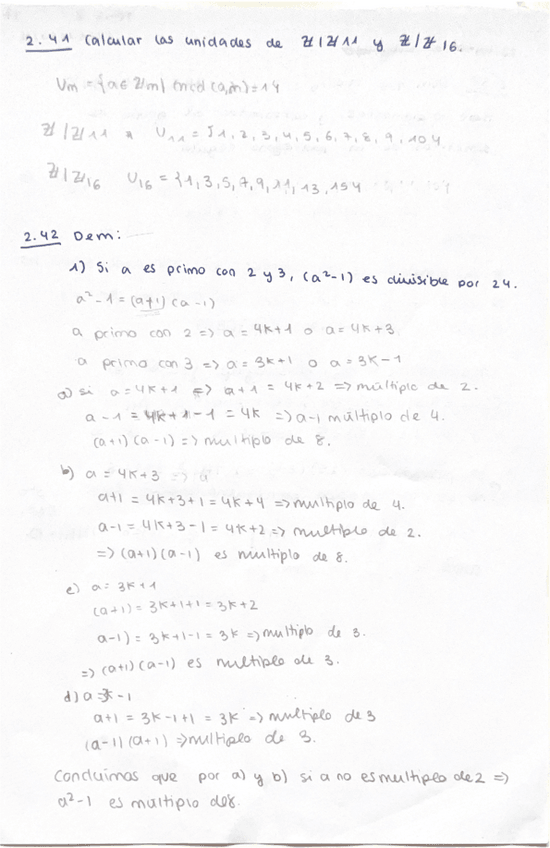 2.41 Calcular las unidades de ℤ|ℤ11 y ℤ|ℤ16.
Um = {a ∈ ℤ/m| mcd (a,m) = 1}
ℤ|ℤ11 U11 = {1, 2, 3, 4, 5, 6, 7, 8, 9, 10}
ℤ|ℤ16 U16 = {1, 3, 5, 7, 9, 11, 13, 15}
2.42 Dem:
1) Si a es primo con 2 y 3, (a²-1) es divisible por 24.
a²-1 = (a+1)(a-1)
a primo con 2 => a = 4k+1 o a = 4k+3
a primo con 3 => a = 3k+1 o a = 3k-1
a) si a = 4k+1 => a+1 = 4k+2 => múltiplo de 2.
a-1 = 4k+1-1 = 4k => a-1 múltiplo de 4.
(a+1)(a-1) => multiplo de 8.
b) a = 4k+3 => a
a+1 = 4k+3+1 = 4k+4 => multiplo de 4.
a-1 = 4k+3-1 = 4k+2 => multiplo de 2.
=> (a+1)(a-1) es multiplo de 8.
c) a = 3k+1
(a+1) = 3k+1+1 = 3k+2
a-1) = 3k+1-1 = 3k => multiplo de 3.
=> (a+1)(a-1) es multiplo de 3.
d) a = 3k-1
a+1 = 3k-1+1 = 3k => multiplo de 3
(a-1)(a+1) => multiplo de 3.
Concluimos que por a) y b) si a no es multiplo de 2 =>
a²-1 es multiplo de 8.